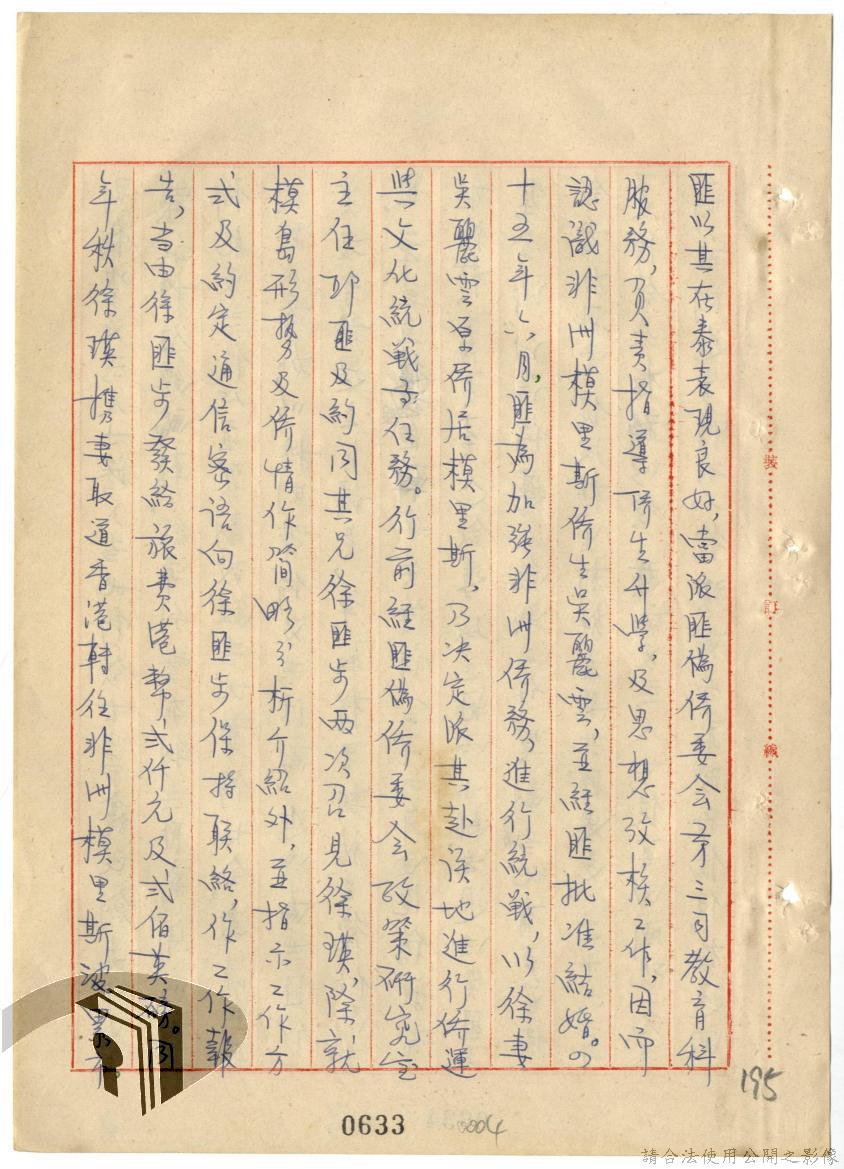 匪以其在泰表現良好，當派匪偽侨委会苐三司教育科
服務，負責指導侨生升學，及思想攷核工作，因而
認識非洲模里斯侨生吳麗雲，並經匪批准結婚。四
十五年六月，匪為加強非洲侨務，進行統戰，以徐妻
吳麗雲原侨居模里斯，乃决定派其赴该地進行侨運
與文化統戰等任務。行前經匪偽侨委会政策研究室
主任邱匪及約同其兄徐匪步两次召見徐瑛，除就
模島形勢及侨情作簡略分析介紹外，並指示工作方
式及約定通信密语向徐匪步保持联絡，作工作報
告，当由徐匪步發給旅费港幣弍仟元及弍佰英磅。同
年秋徐瑛携妻取道香港轉往非洲模里斯波累市。
裝
訂
線
195
0633
0004
請合法使用公開之影像